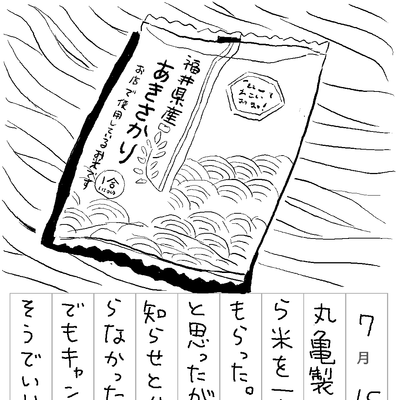 福井県産
あきさかり
お店で使用しているお米です
一合
7月15
丸亀製
ら米を一
もらった。
と思ったが
知らせと
らなかった
でもキャン
そうでい